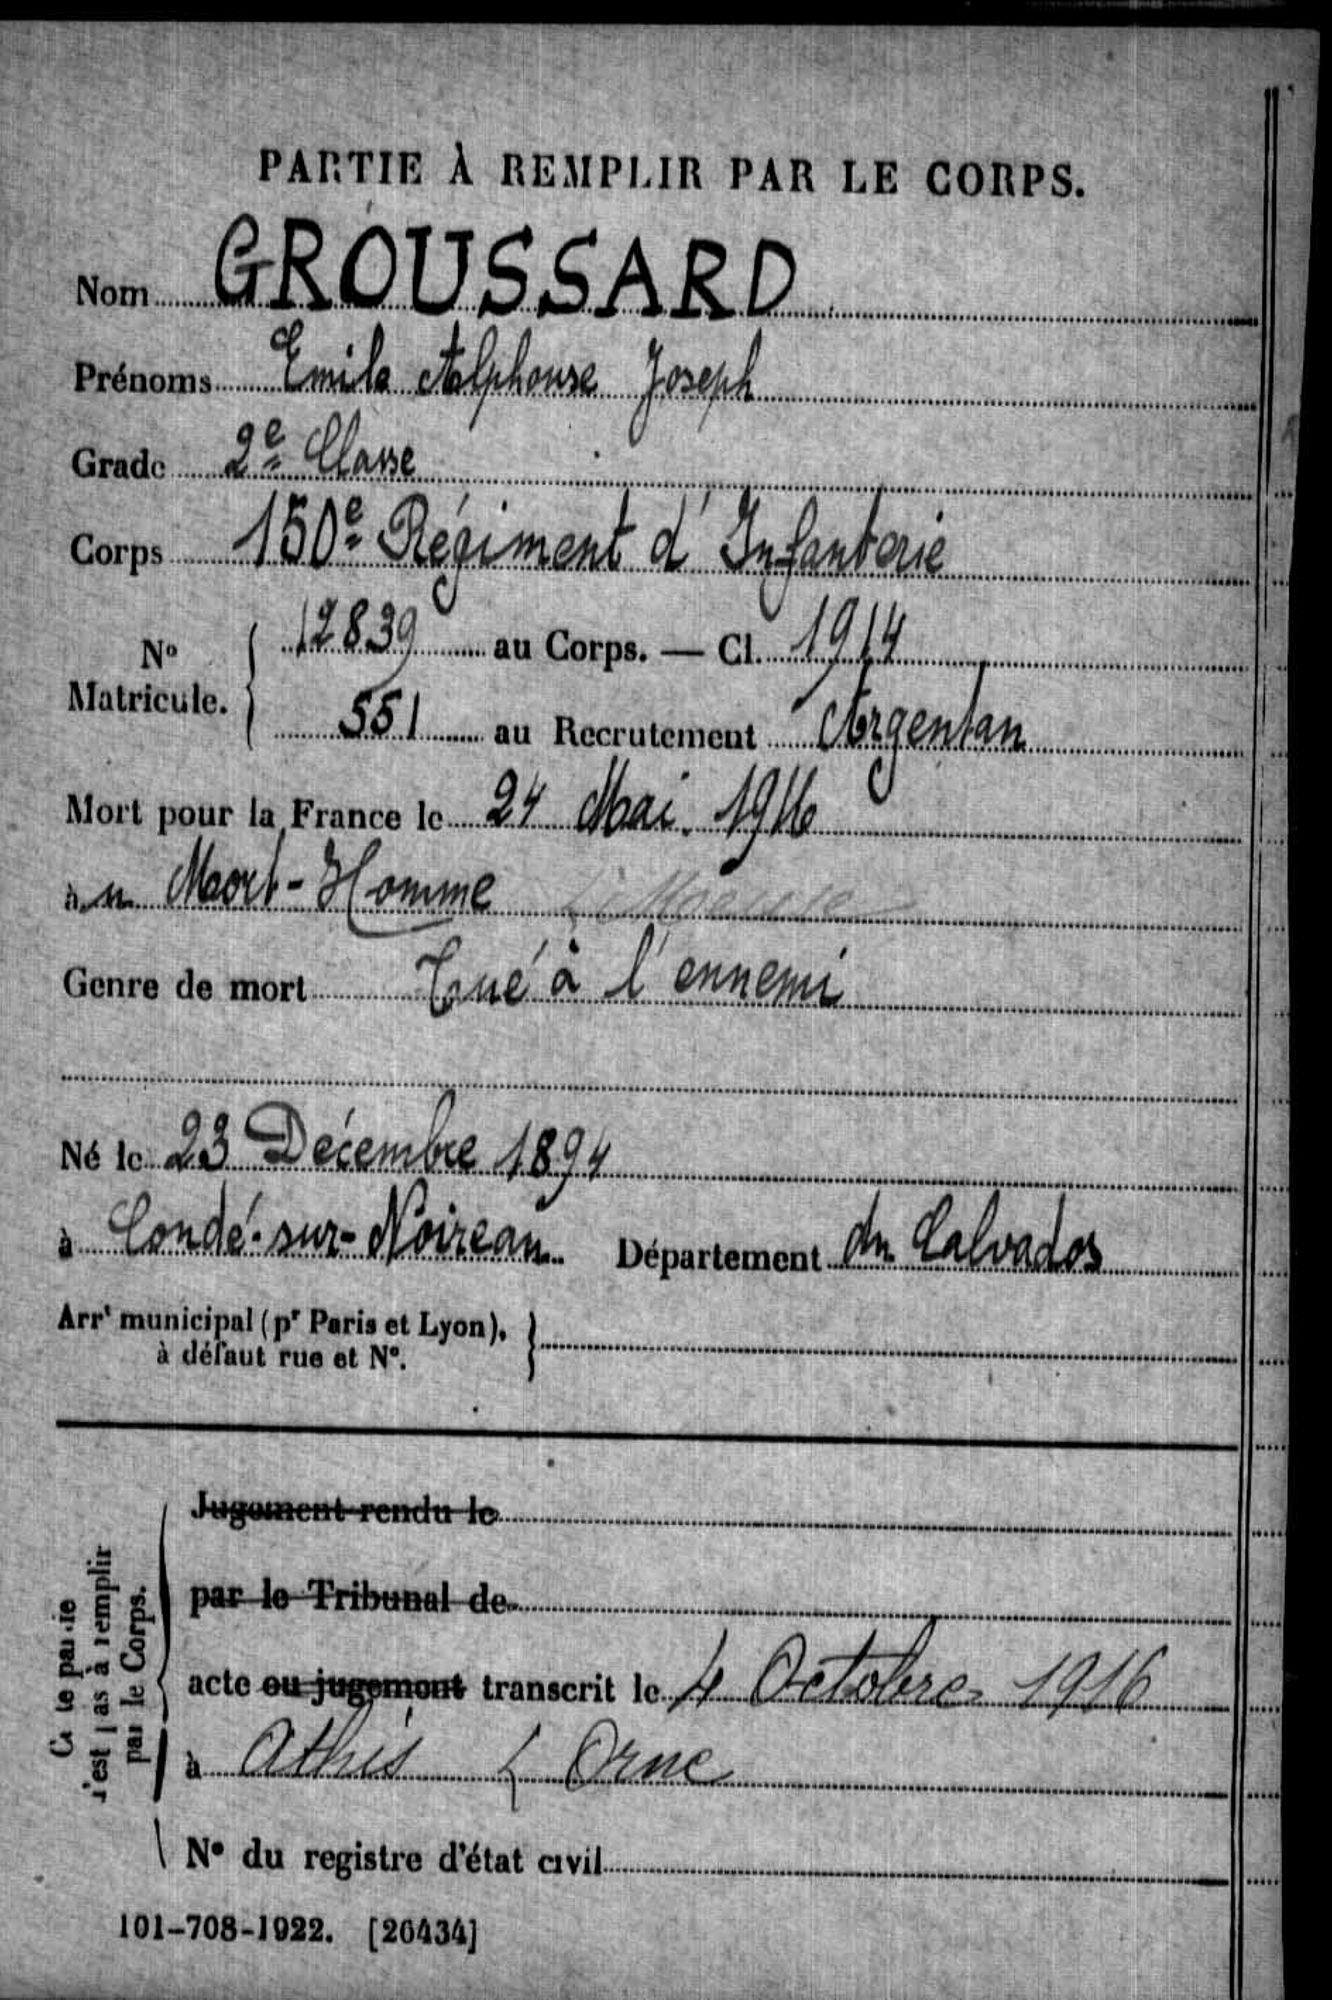 PARTIE À REMPLIR PAR LE CORPS.
Nom GROUSSARD
Prénoms Emile Alphonse Joseph
Grade 2e Classe
Corps 150e Régiment d'Infanterie
No Matricule. { 12839 au Corps. — Cl. 1914
551 au Recrutement Argentan
Mort pour la France le 24 Mai 1916
au Mort-Homme (Meuse
Genre de mort Tué à l'ennemi
Né le 23 Décembre 1894
à Condé-sur-Noireau Département du Calvados
Arrt municipal (pr Paris et Lyon),
à défaut rue et No.
Jugement rendu le
par le Tribunal de
acte ou jugement transcrit le 4 Octobre 1916
à Athis (Orne
No du registre d'état civil
Cette partie
n'est pas à remplir
par le Corps.
101-708-1922. [26434]